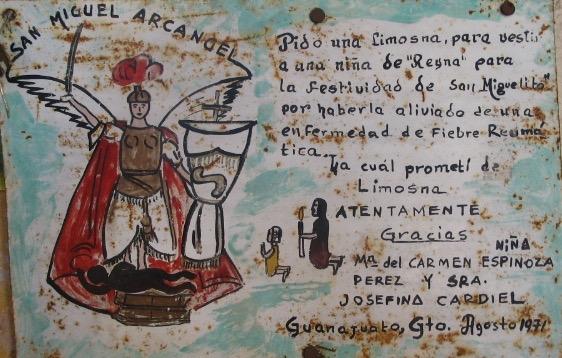 SAN MIGUEL ARCANGEL
Pido una Limosna, para vestir
a una niña de "Reyna" para
la festividad de San Miguelito"
por haberla aliviado de una
enfermedad de fiebre Reuma
tica.
La cuál prometí de
Limosna
ATENTAMENTE
Gracias
NIÑA
Mª del CARMEN ESPINOZA
PEREZ Y SRA.
JOSEFINA CARDIEL
Guanajuato, Gto. Agosto 1971